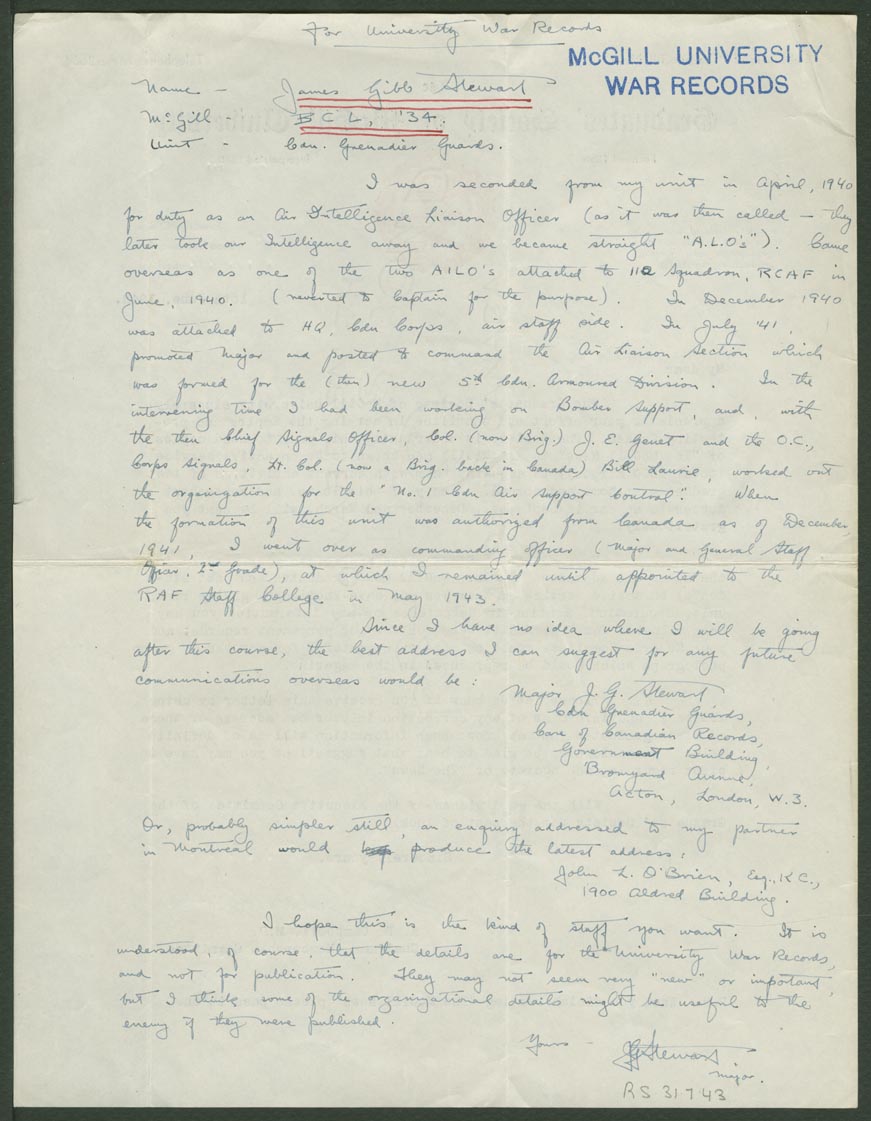 For University War Records
McGILL UNIVERSITY
WAR RECORDS
Name - James Gibb Stewart
McGill - BCL, '34
Unit - Cdn. Grenadier Guards.
I was seconded from my unit in April, 1940
for duty as an Air Intelligence Liaison Officer (as it was then called — they
later took our Intelligence away and we became straight "A.L.O's"). Came
overseas as one of the two AILO's attached to 112 Squadron, RCAF in
June, 1940. (reverted to Captain for the purpose). In December 1940
was attached to HQ, Cdn Corps, air staff side. In July '41,
promoted Major and posted to command the Air Liaison Section which
was formed for the (then) new 5th Cdn. Armoured Division. In the
intervening time I had been working on Bomber Support, and, with
the then Chief Signals Officer, Col. (now Brig.) J. E. Genet and the O.C.,
Corps Signals, Lt. Col. (now a Brig. back in Canada) Bill Laurie, worked out
the organization for the "No. 1 Cdn Air Support Control". When
the formation of this unit was authorized from Canada as of December,
1941, I went over as commanding officer (Major and General Staff
Officer, 2nd Grade), at which I remained until appointed to the
RAF Staff College in May 1943.
Since I have no idea where I will be going
after this course, the best address I can suggest for any future
communications overseas would be :
Major J. G. Stewart
Cdn Grenadier Guards,
Care of Canadian Records,
Government Building,
Bromyard Avenue,
Acton, London, W.3.
Or, probably simpler still, an enquiry addressed to my partner
in Montreal would produce the latest address :
John L. O'Brien, Esq., K.C.,
1900 Aldred Building.
I hope this is the kind of stuff you want. It is
understood, of course, that the details are for the University War Records,
and not for publication. They may not seem very "new" or important,
but I think some of the organizational details might be useful to the
enemy if they were published.
Yours -
JGStewart
Major.
RS 31743